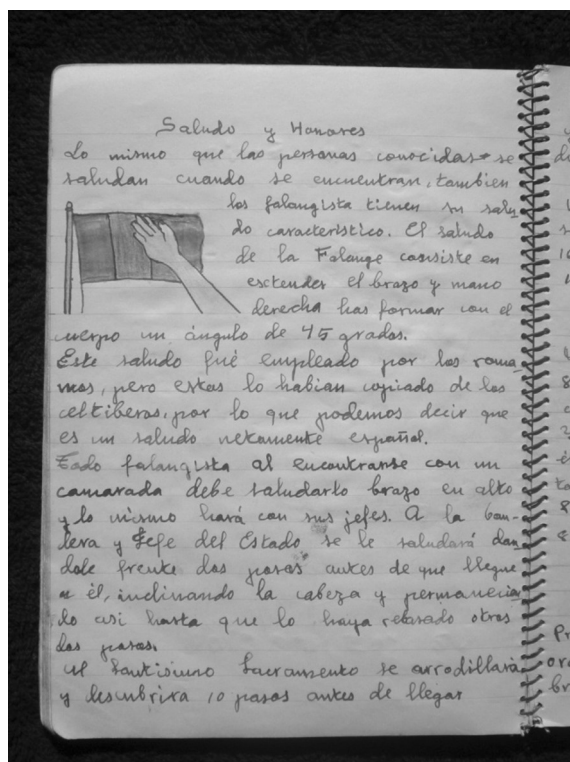 Saludo y Honores
Lo mismo que las personas conocidas se
saludan cuando se encuentran, tambien
los falangista tienen su salu
do caracteristico. El saludo
de la Falange consiste en
exctender el brazo y mano
derecha has formar con el
cuerpo un ángulo de 45 grados.
Este saludo fué empleado por los roma
mos, pero estos lo habian copiado de los
celtiberos, por lo que podemos decir que
es un saludo netamente español.
Todo falangista al encontranse con un
camarada debe saludarlo brazo en alto
y lo mismo hará con sus jefes. A la ban-
dera y Jefe del Estado se le saludará dan
dole frente dos pasos antes de que llegue
a él, inclinando la cabeza y permanecien
do asi hasta que lo haya rebasado otros
dos pasos.
Al Santisimo Sacramento se arrodillará
y descubrira 10 pasos antes de llegar